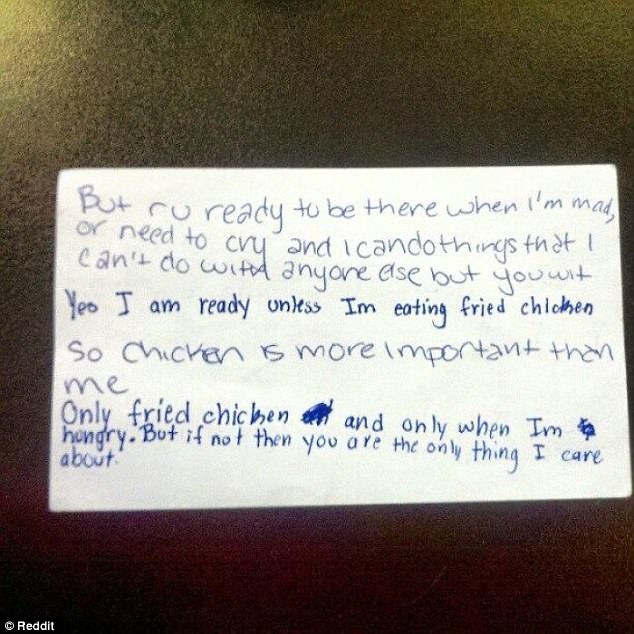 But r u ready to be there when I'm mad,
or need to cry and I can do things that I
can't do with anyone else but you
Yes I am ready unless Im eating fried chicken
So chicken is more important than
me
Only fried chicken and only when Im
hungry. But if not then you are the only thing I care
about.
© Reddit